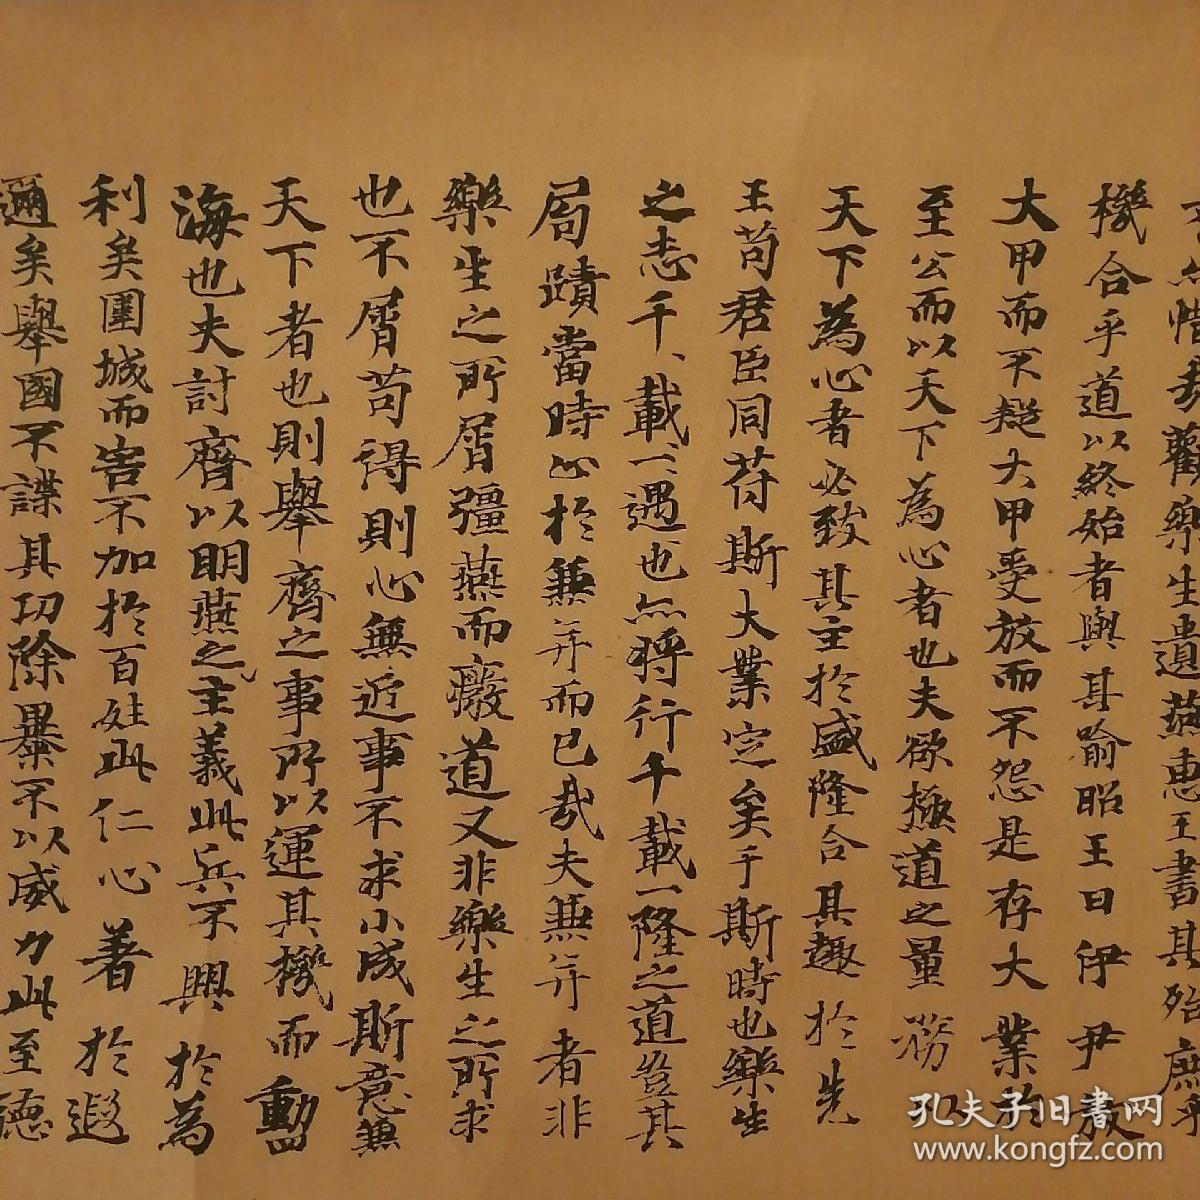 然惜哉觀樂生遺燕惠王書其殆庶乎
機合乎道以終始者與其喻昭王曰伊尹放
大甲而不疑大甲受放而不怨是存大業於
至公而以天下為心者也夫欲極道之量務以
天下為心者必致其主於盛隆合其趣於先
王苟君臣同苻斯大業定矣于斯時也樂生
之志千、載一、遇也亦將行千載一隆之道豈其
局蹟當時心於兼并而已哉夫兼并者非
樂生之所屑彊燕而癈道又非樂生之所求
也不屑苟得則心無近事不求小成斯意無
天下者也則舉齊之事所以運其機而動
海也夫討齊以明燕之主義此兵不興於為
利矣圍城而害不加於百姓此仁心著於遐
邇矣舉國不謀其功除暴不以威力此至德
孔夫子旧書网
www.kongfz.com